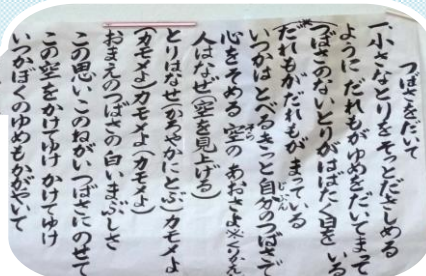 つばさをだいて
一小さなとりをそっとだきしめる
ように だれもがゆめをだいてまって
いる
※つばさのないとりがはばたく日を
だれもがだれもが まっている
いつかはとべるきっと自分のつばさで
じぶん
心をそめる 空の あおさよ ※くりかえし
そら
人はなぜ(空を見上げる)
とりはなぜ(かろやかにとぶ)カモメよ
(カモメよ)カモメよ(カモメよ)
おまえのつばさの白いまぶしさ
この思い このねがい つばさにのせて
この空をかけてゆけ かけてゆけ
いつかぼくのゆめもかがやいて